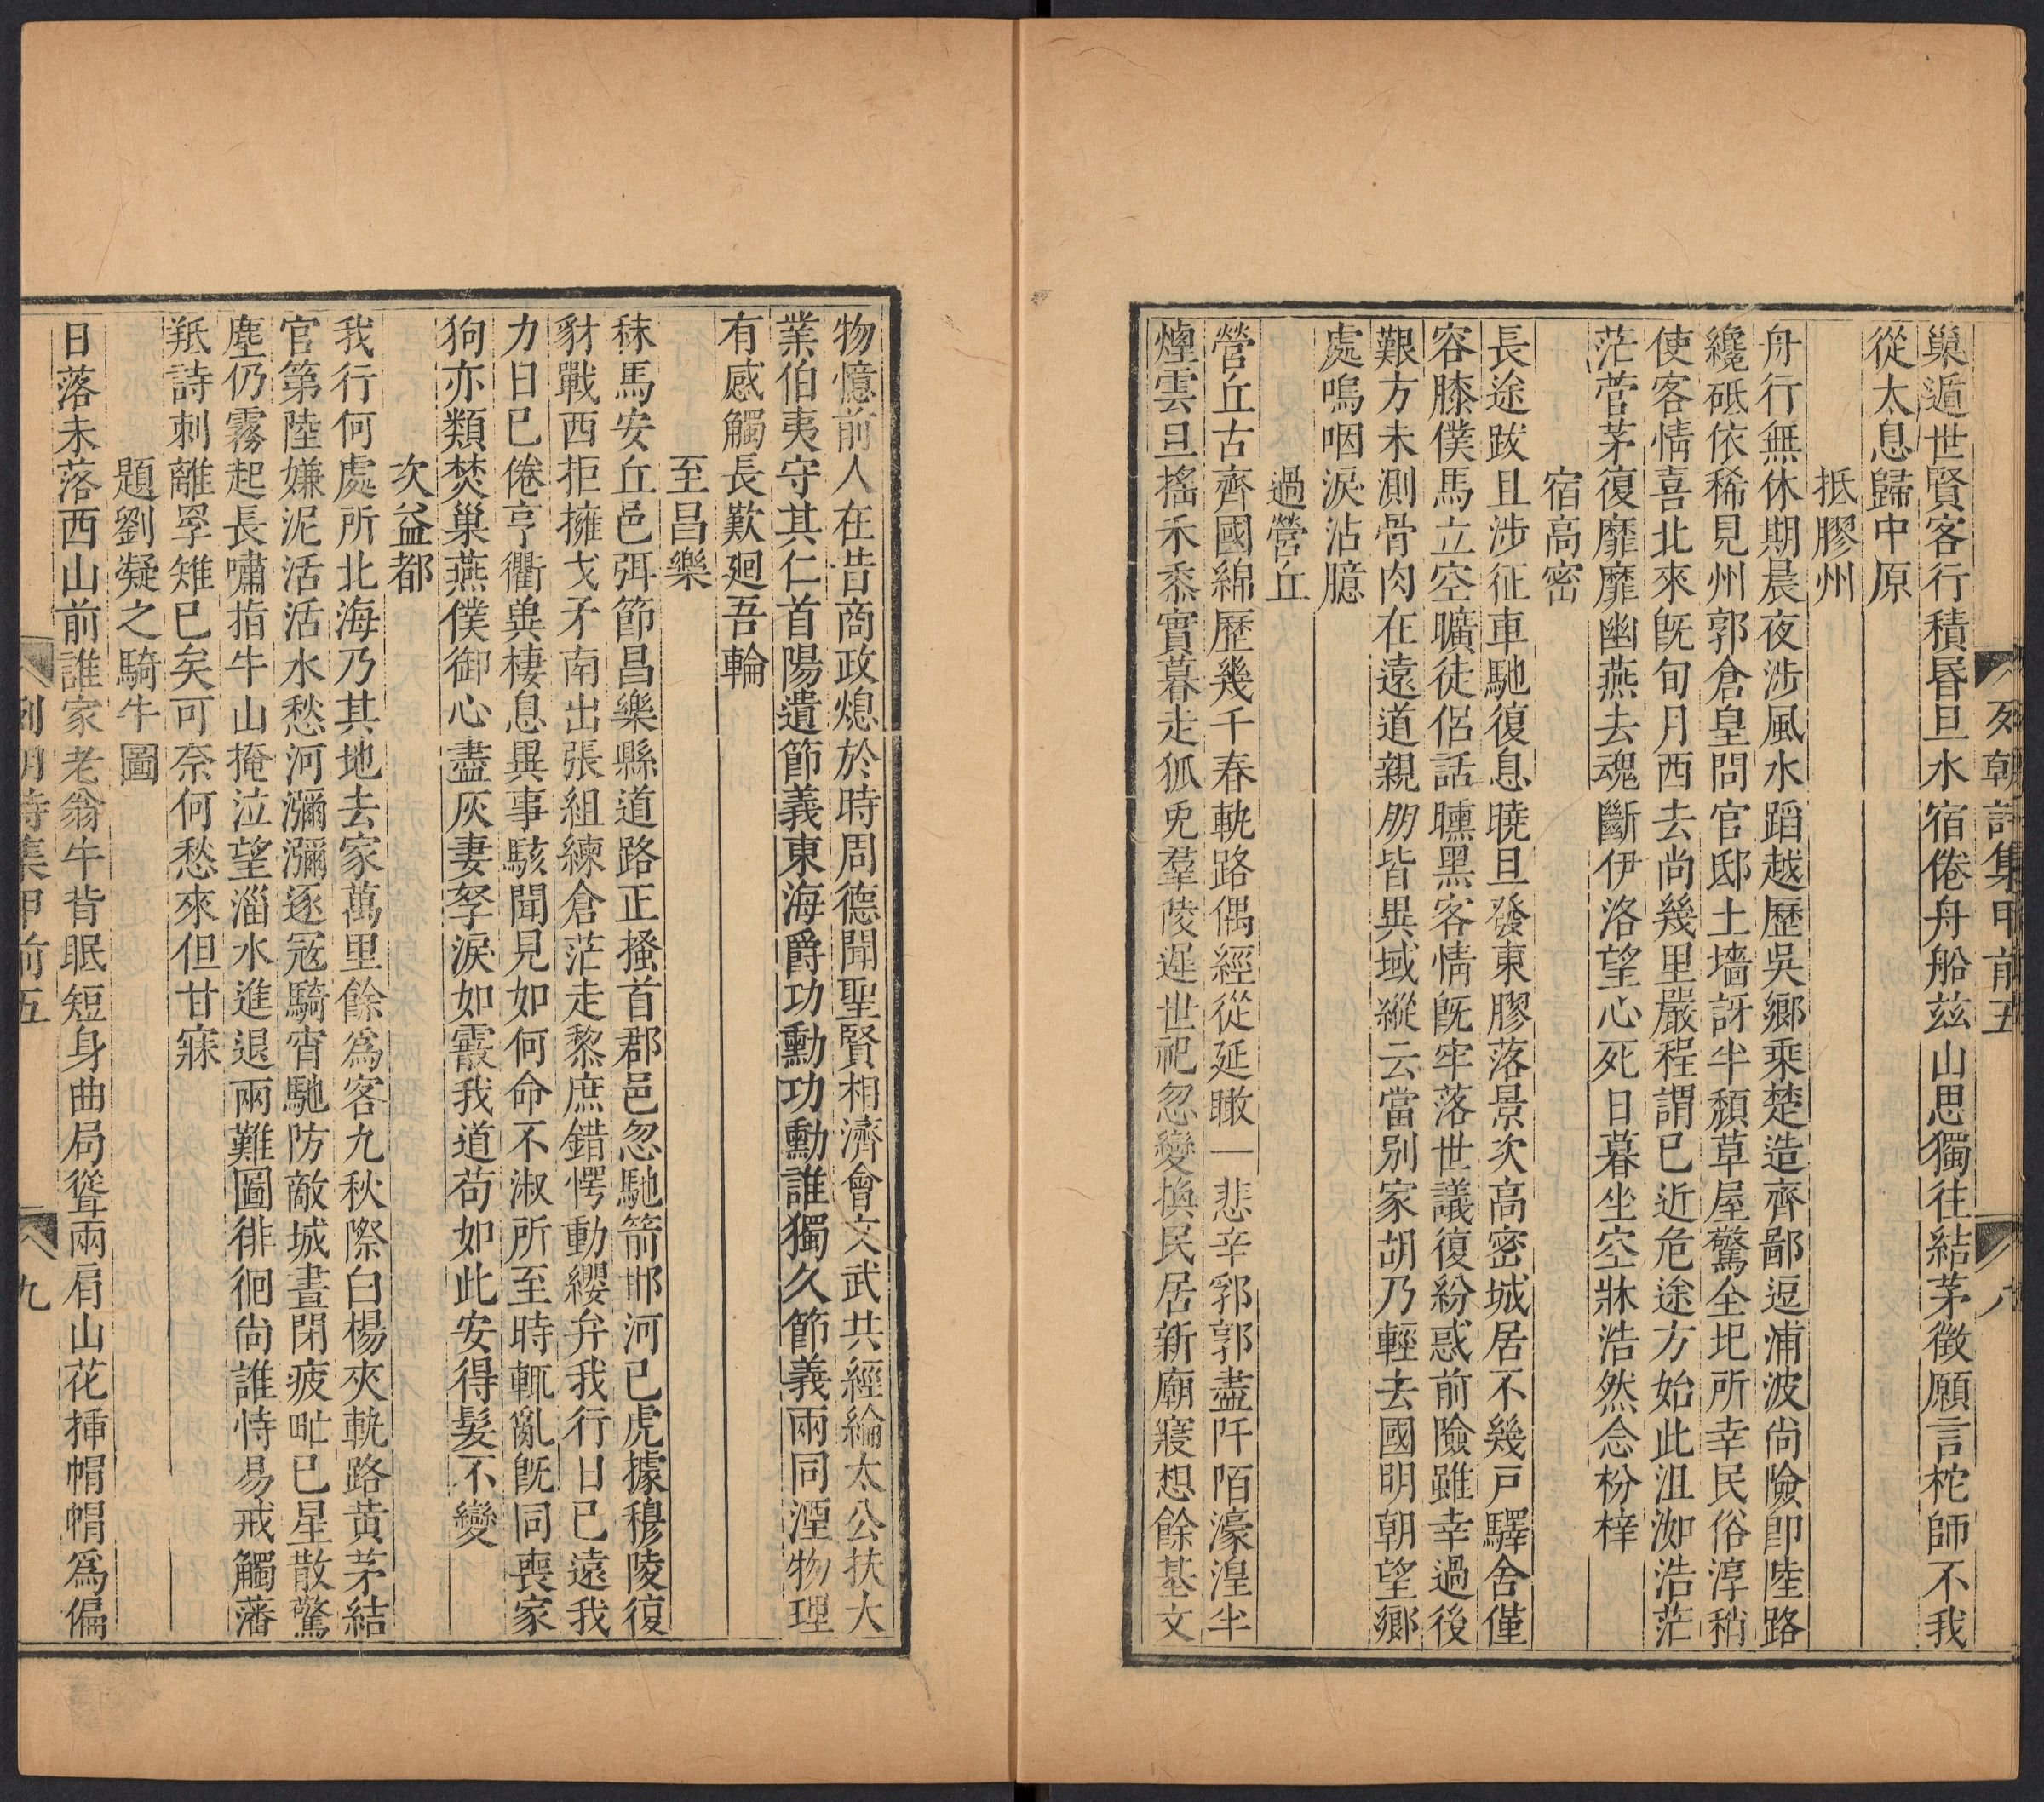 列朝詩集甲前五
八
巢遁世賢客行積昏旦水宿倦舟船兹山思獨往結茅徵願言柁師不我
從太息歸中原
抵膠州
舟行無休期晨夜涉風水蹈越歷吳鄉乘楚造齊鄙逗浦波尚險卽陸路
纔砥依稀見州郭倉皇問官邸土墻訝半頹草屋驚全圯所幸民俗淳稍
使客情喜北來旣旬月西去尚幾里嚴程謂已近危途方始此沮洳浩茫
茫菅茅復靡靡幽燕去魂斷伊洛望心死日暮坐空牀浩然念枌梓
宿高密
長途跋且涉征車馳復息曉旦發東膠落景次高密城居不幾戶驛舍僅
容膝僕馬立空曠徒侶話曛黑客情旣牢落世議復紛惑前險雖幸過後
艱方未測骨肉在遠道親朋皆異域縱云當別家胡乃輕去國明朝望鄉
處嗚咽淚沾臆
過營丘
營丘古齊國綿歷幾千春軌路偶經從延瞰一悲辛郛郭盡阡陌濠湟半
煙雲旦搖禾黍實暮走狐兎羣陵遲世祀忽變換民居新廟寢想餘基文
物憶前人在昔商政熄於時周德聞聖賢相濟會文武共經綸太公扶大
業伯夷守其仁首陽遺節義東海爵功勳功勳誰獨久節義兩同湮物理
有感觸長歎廻吾輪
至昌樂
秣馬安丘邑弭節昌樂縣道路正搔首郡邑忽馳箭邯河已虎據穆陵復
豺戰西拒擁戈矛南出張組練倉茫走黎庶錯愕動纓弁我行日已遠我
力日已倦亨衢異棲息異事駭聞見如何命不淑所至時輒亂旣同喪家
狗亦類焚巢燕僕御心盡灰妻孥淚如霰我道苟如此安得髮不變
次益都
我行何處所北海乃其地去家萬里餘爲客九秋際白楊夾軌路黃茅結
官第陸嫌泥活活水愁河瀰瀰逐寇騎宵馳防敵城晝閉疲甿已星散驚
塵仍霧起長嘯指牛山掩泣望淄水進退兩難圖徘徊尚誰恃易戒觸藩
羝詩刺離罦雉已矣可奈何愁來但甘寐
題劉凝之騎牛圖
日落未落西山前誰家老翁牛背眠短身曲局聳兩肩山花揷帽帽爲偏
列朝詩集甲前五
九